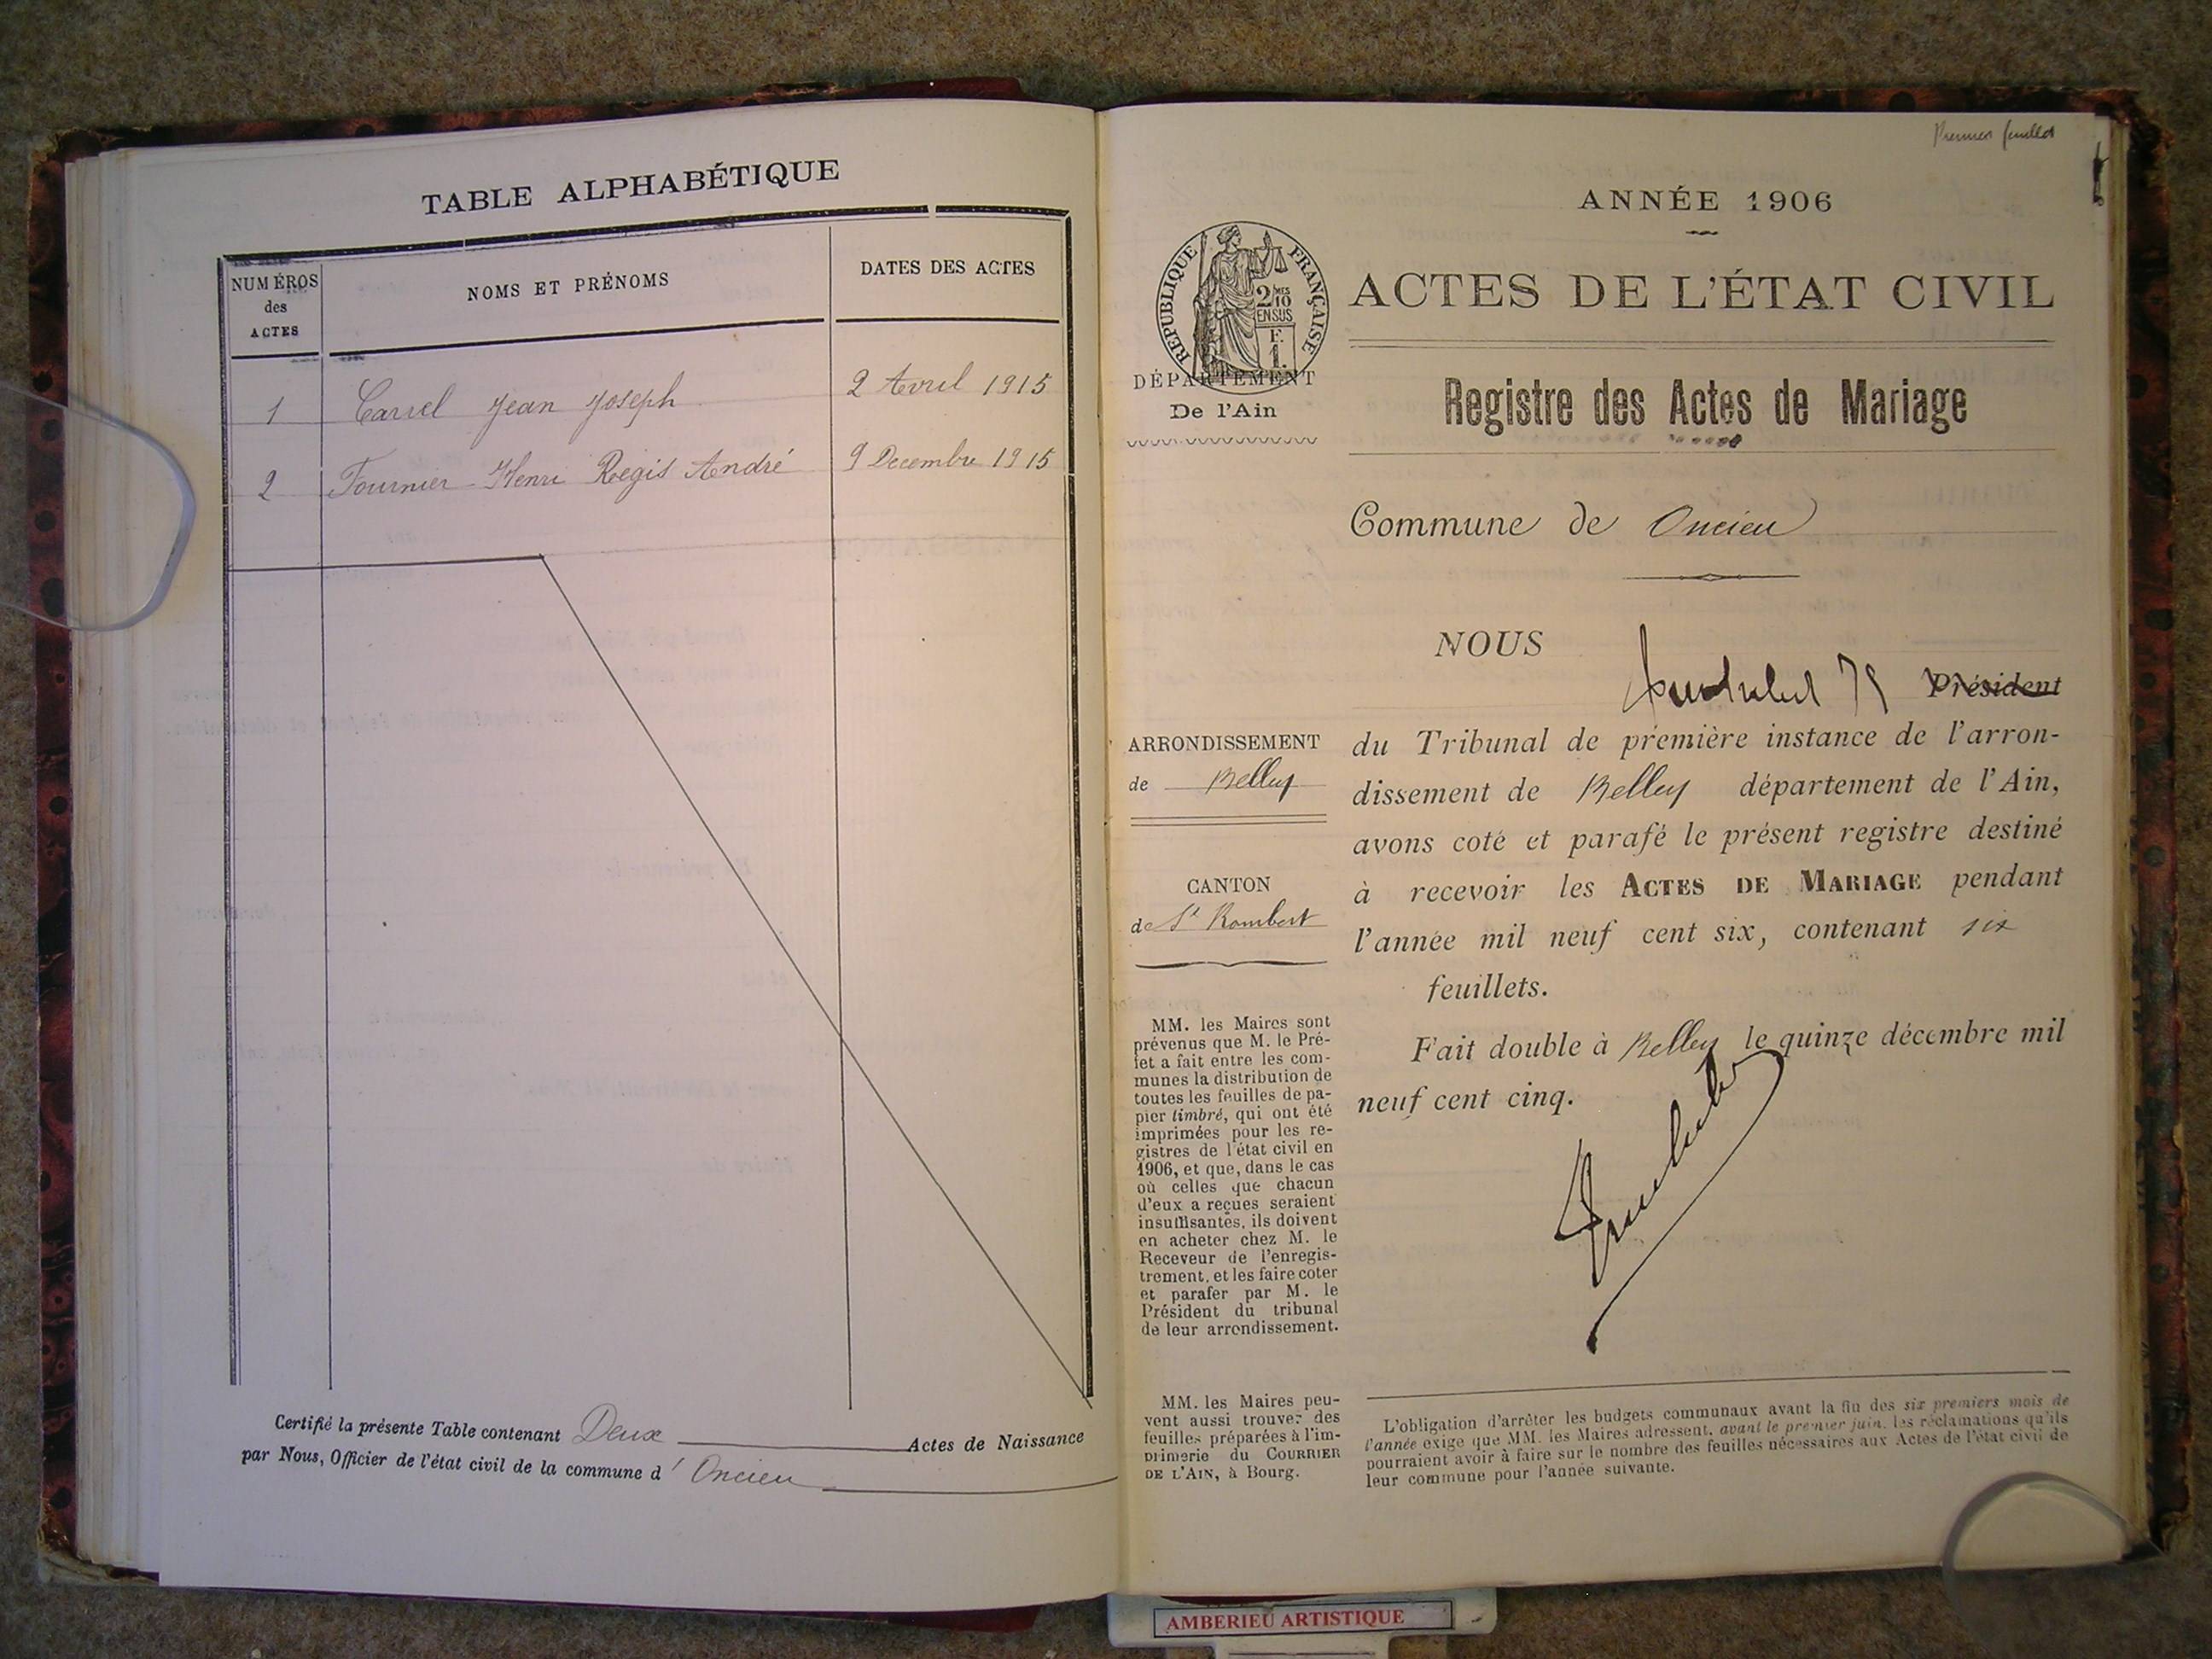 TABLE ALPHABÉTIQUE
NUMÉROS
des
ACTES
NOMS ET PRÉNOMS
DATES DES ACTES
1 Carrel Jean Joseph 2 Avril 1915
2 Fournier Henri Regis André 9 Decembre 1915
Certifié la présente Table contenant Deux Actes de Naissance
par Nous, Officier de l'état civil de la commune d' Oncieu
Premier feuillet
ANNÉE 1906
RÉPUBLIQUE FRANÇAISE
2/10 EN SUS
F.
1.
ACTES DE L'ÉTAT CIVIL
DÉPARTEMENT
De l'Ain
Registre des Actes de Mariage
Commune de Oncieu
NOUS
Président
ARRONDISSEMENT
de Belley
CANTON
de St Rambert
du Tribunal de première instance de l'arron-
dissement de Belley département de l'Ain,
avons coté et parafé le présent registre destiné
à recevoir les ACTES DE MARIAGE pendant
l'année mil neuf cent six, contenant six
feuillets.
Fait double à Belley le quinze décembre mil
neuf cent cinq.
MM. les Maires sont
prévenus que M. le Pré-
fet a fait entre les com-
munes la distribution de
toutes les feuilles de pa-
pier timbré, qui ont été
imprimées pour les re-
gistres de l'état civil en
1906, et que, dans le cas
où celles que chacun
d'eux a reçues seraient
insuffisantes, ils doivent
en acheter chez M. le
Receveur de l'enregis-
trement, et les faire coter
et parafer par M. le
Président du tribunal
de leur arrondissement.
MM. les Maires peu-
vent aussi trouver des
feuilles préparées à l'im-
primerie du COURRIER
DE L'AIN, à Bourg.
L'obligation d'arrêter les budgets communaux avant la fin des six premiers mois de
l'année exige que MM. les Maires adressent, avant le premier juin, les réclamations qu'ils
pourraient avoir à faire sur le nombre des feuilles nécessaires aux Actes de l'état civil de
leur commune pour l'année suivante.
AMBERIEU ARTISTIQUE